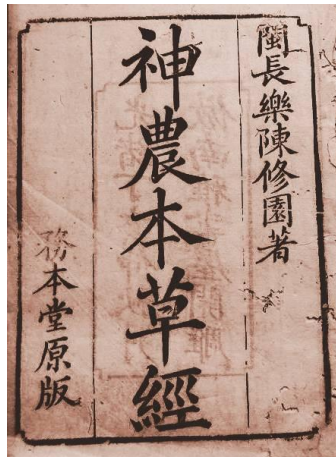 閩長樂陳修園著
神農本草經
務本堂原版